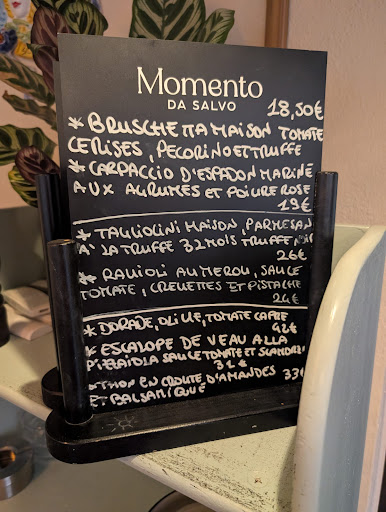 Momento
DA SALVO
18,50€
* BRUSCHETTA MAISON TOMATE
CERISES, PECORINO ET TRUFFE
* CARPACCIO D'ESPADON MARINE
AUX AGRUMES ET POIVRE ROSE
19€
* TAGLIOLINI MAISON, PARMESAN
À LA TRUFFE 32 MOIS TRUFFE NOIR
26€
* RAVIOLI AU MEROU, SAUCE
TOMATE, CREVETTES ET PISTACHE
24€
* DORADE, OLIVE, TOMATE CAPRE
42€
* ESCALOPE DE VEAU ALLA
PIZZAIOLA SAUCE TOMATE ET
32€
* THON EN CROUTE D'AMANDES 33€
ET BALSAMIQUE